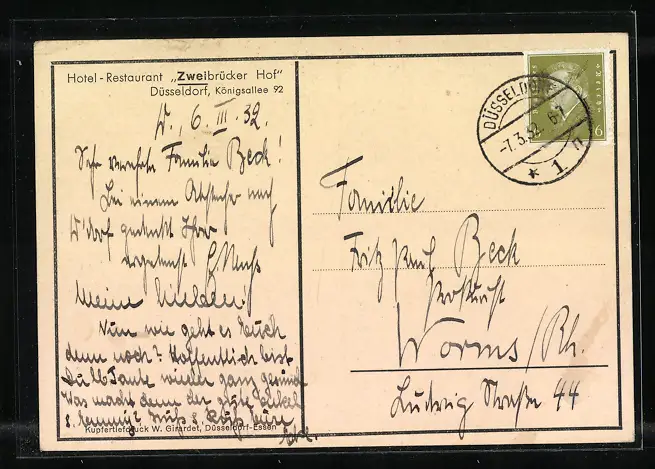 Hotel-Restaurant „Zweibrücker Hof"
Düsseldorf, Königsallee 92
D., 6. III. 32.
Sehr verehrte Familie Beck!
Bei einem Abstecher nach
D'dorf gedenkt Ihrer
ergebenst
Meine Lieben!
Nun wie geht es Euch
denn noch? Hoffentlich bist
Du lb Tante wieder ganz gesund
Was macht denn der gute
Kupfertiefdruck W. Girardet, Düsseldorf-Essen
DÜSSELDORF
-7.3.32. 6-7
* 1 n
6
Familie
Fritz Beck
Worms/Rh.
Ludwig Straße 44